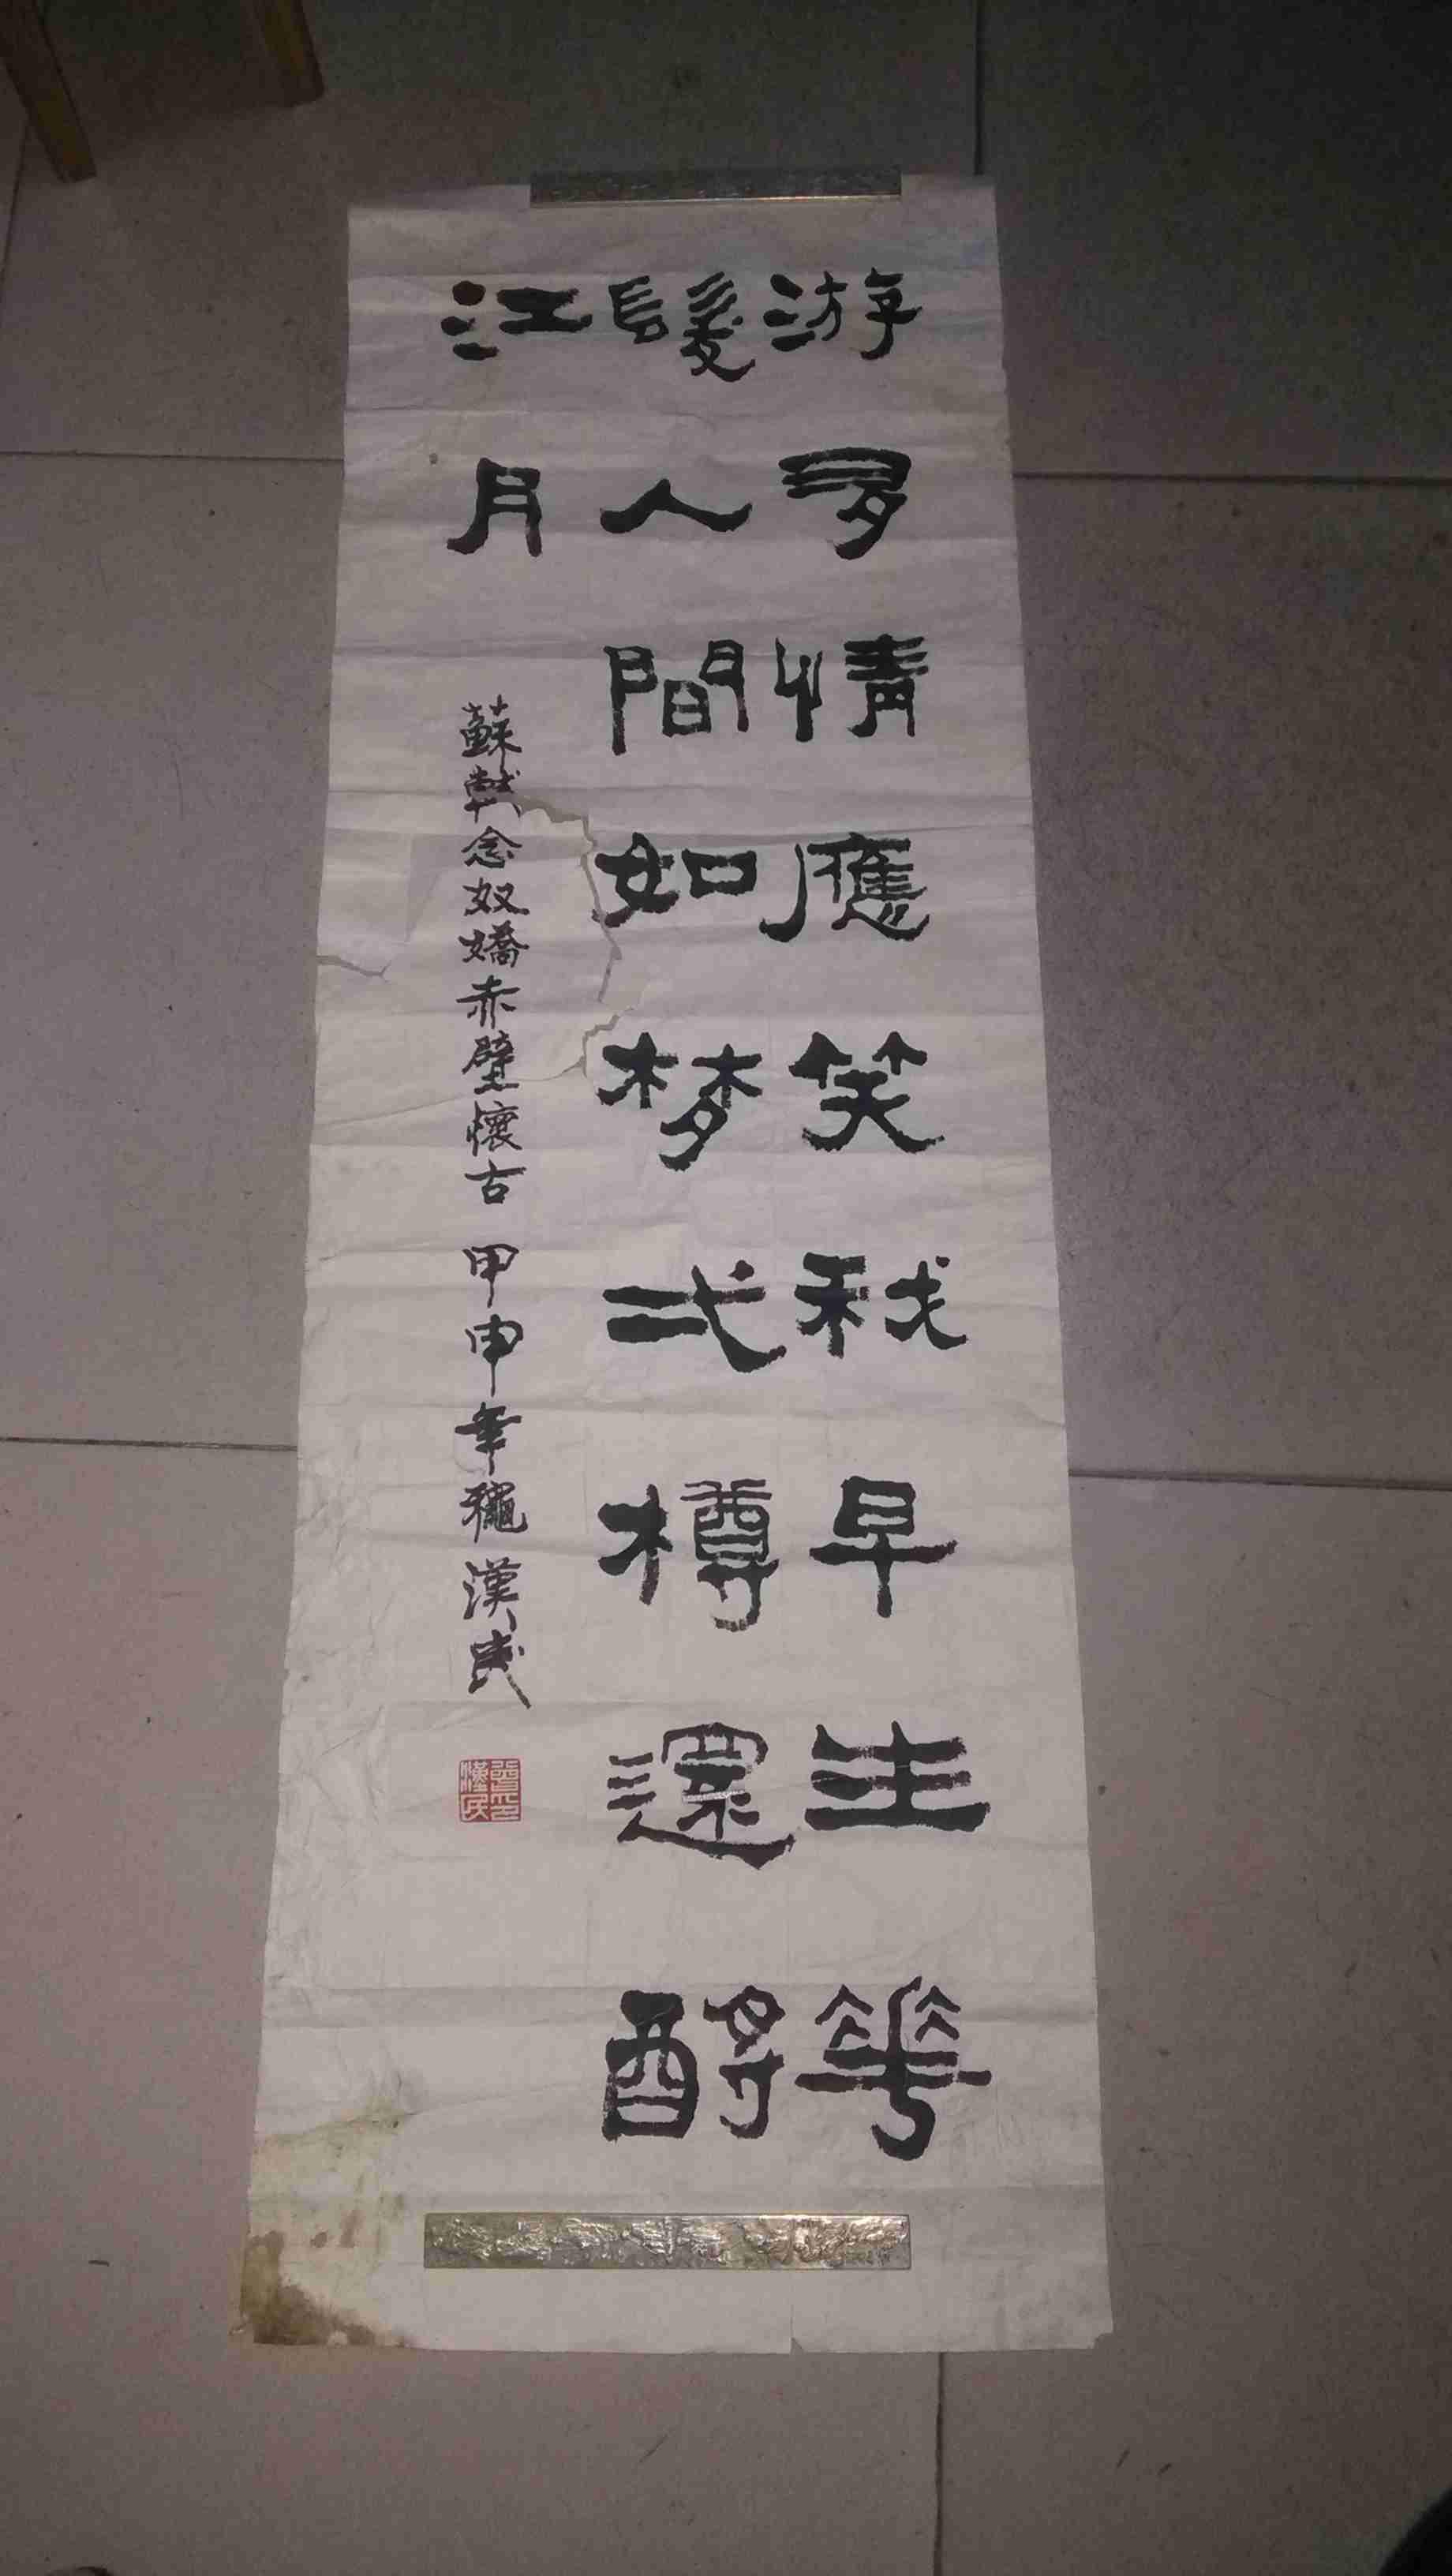 游多情應笑我早生華
髮人間如梦弌樽還酹
江月
蘇軾念奴嬌赤壁懷古 甲申年穐漢民
曾印漢民